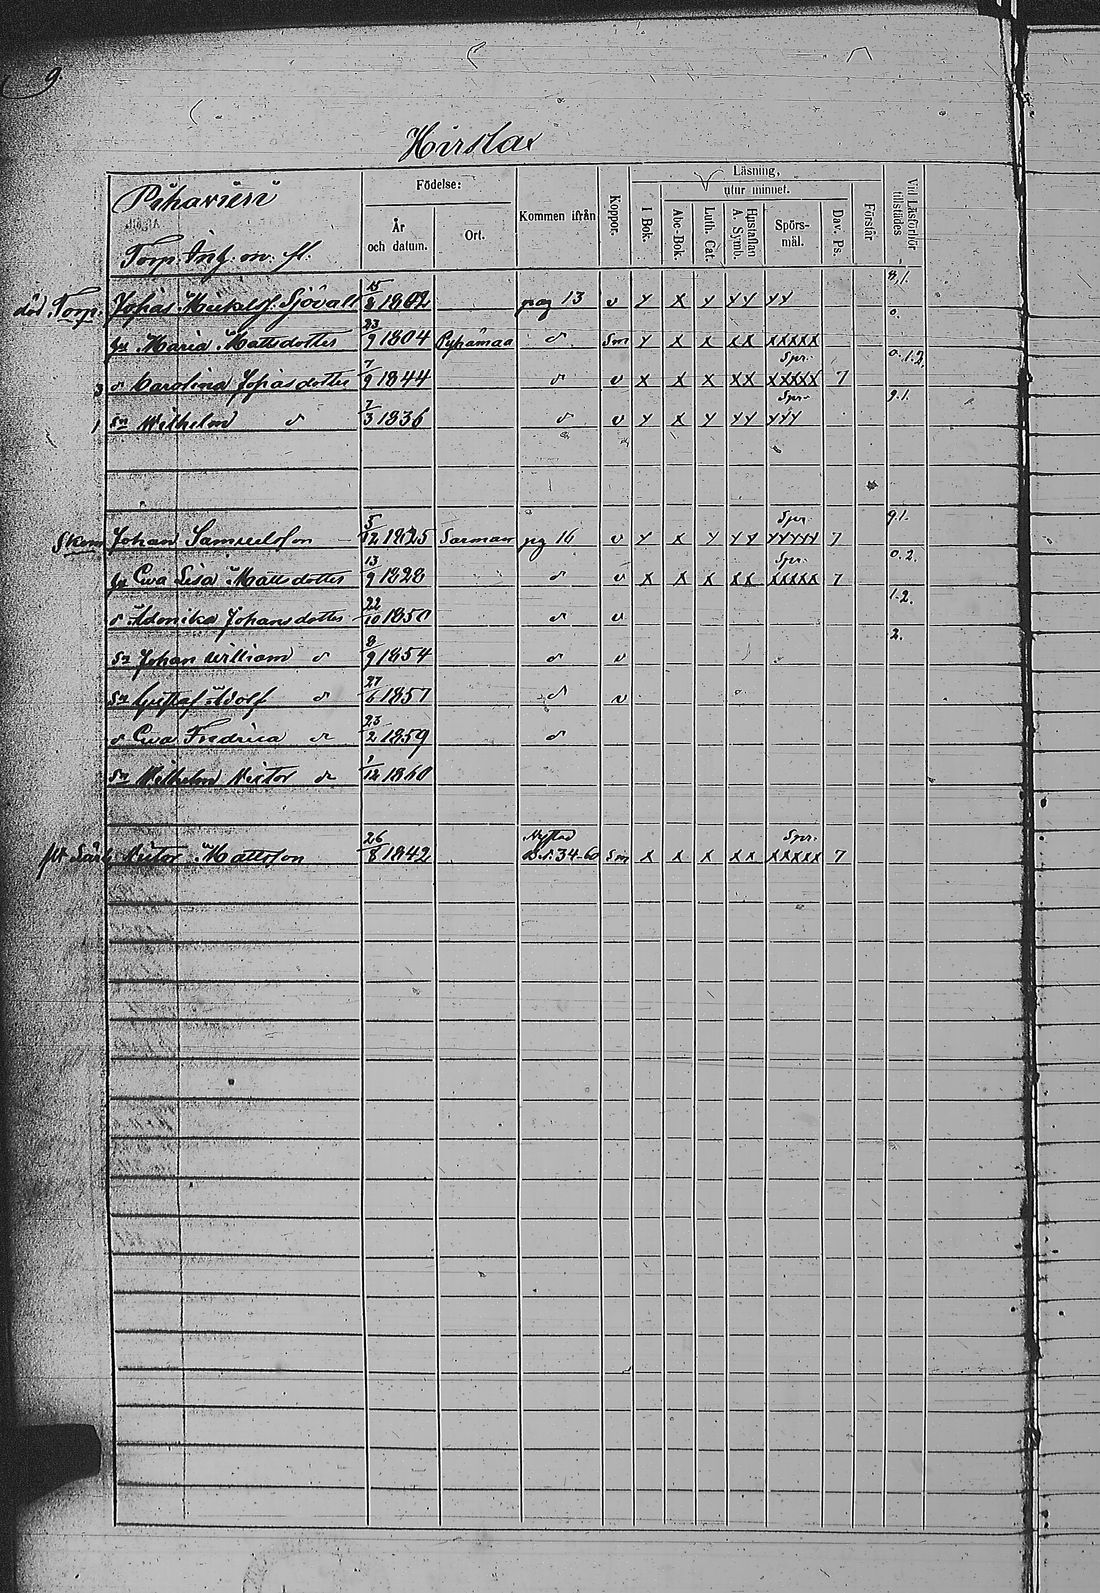 9
Hirslax
Pihavieri
Torp. Inh. m. fl.
Födelse:
År och datum.
Ort.
Kommen ifrån
Koppor.
Läsning,
utur minnet.
I Bok.
Abc-Bok.
Luth. Cat.
Hustaflan A. Symb.
Spörs-mål.
Dav. Ps.
Förstår
Vid Läsförhör tillstädes
Torp. Josias Sjövall 1802 pag 13 v Y X Y YY YY
hu Maria Mattsdotter 23/9 1804 Pyhämaa d Sm Y X X XX XXXXX
3 d Karolina Josiasdotter 7/9 1844 d v X X X XX XXXXX Spr. 7 0.1.2.
1 sn Wilhelm d 7/3 1836 d v Y X Y YY YYY Spr. 9.1.
Skom Johan Samuelsson 5/12 1825 Sarman pg 16 v Y X Y YY YYYYY Spr. 7 9.1.
hu Ewa Lisa Mattsdotter 13/9 1828 d v X X X XX XXXXX Spr. 7 0.2.
d Johansdotter 22/10 1850 d v 1.2.
sn Johan William d 8/9 1854 d v 2.
sn Gustaf Adolf d 27/6 1857 d v
d Ewa Fredrica d 23/2 1859 d
sn Wilhelm Victor d 1/12 1860
Victor Mattsson 26/8 1842 Nystad 34-60 Sm X X X XX XXXXX Spr. 7